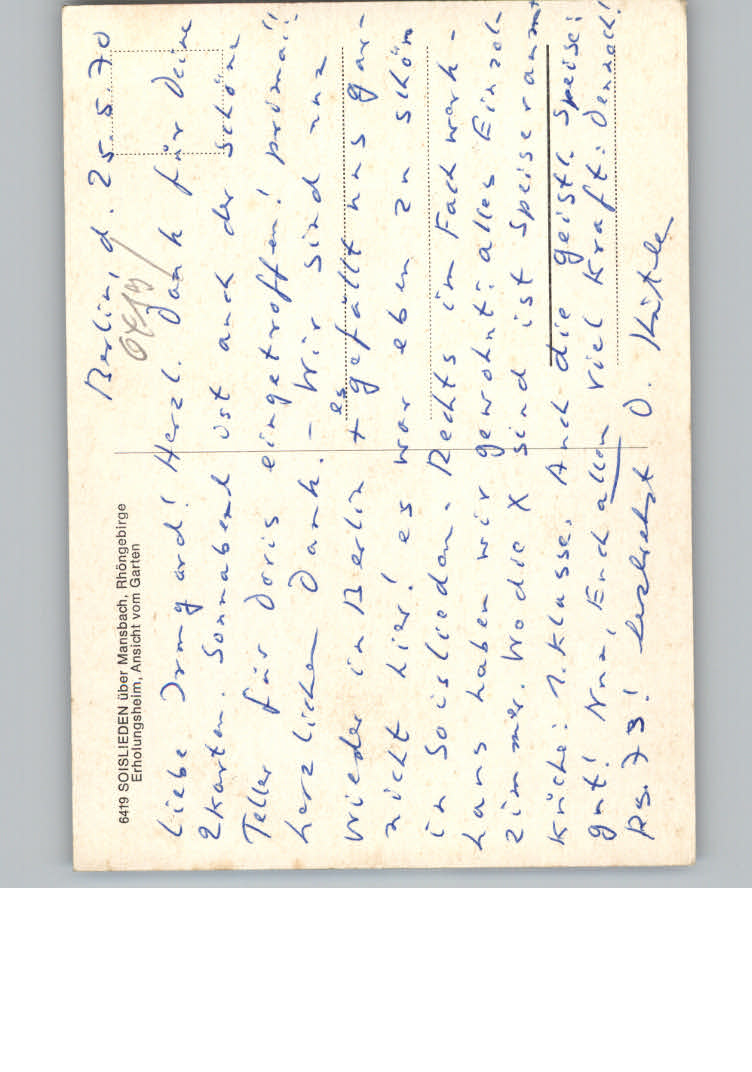 6419 SOISLIEDEN über Mansbach, Rhöngebirge
Erholungsheim, Ansicht vom Garten
Berlin, d. 25.5.70
Liebe Irmgard! Herzl. Dank für Deine
2 Karten. Sonnabend ist auch der schöne
Teller für Doris eingetroffen! prima!!
herzlichen Dank. – Wir sind nun
wieder in Berlin + es gefällt uns gar-
nicht hier! es war eben zu schön
in Soislieden. Rechts im Fachwerk-
haus haben wir gewohnt: alles Einzel
zimmer. Wo die X sind ist Speiseraum +
Küche: 1. Klasse. Auch die geistl. Speise:
gut! Nun, Euch allen viel Kraft: Dennoch!
Ps. 73! herzlichst D. Käthe